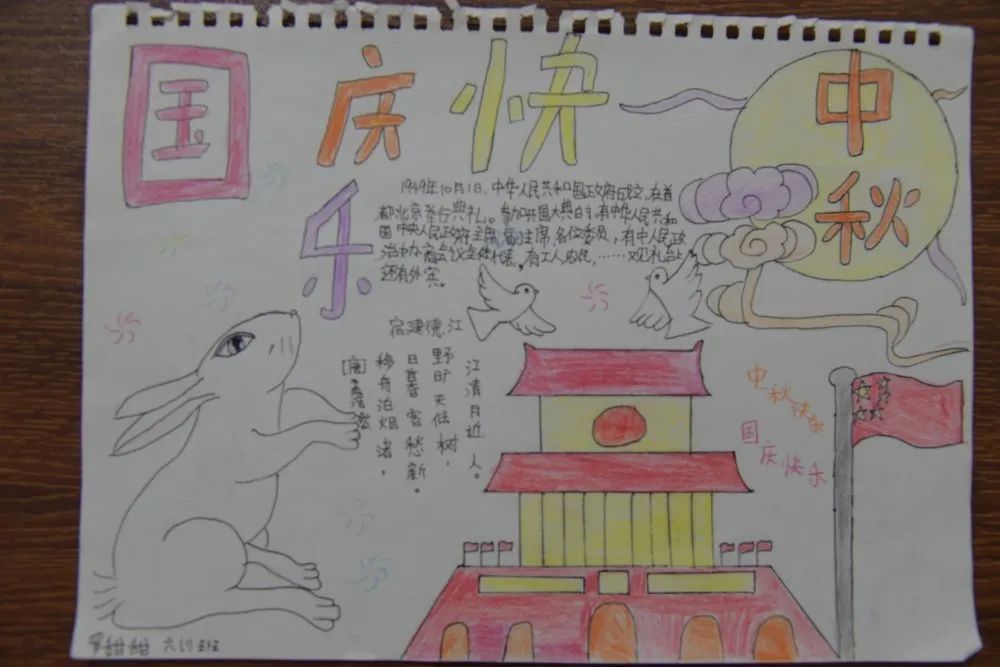 国庆快
乐
中
秋
1949年10月1日,中华人民共和国政府成立,在首
都北京举行典礼。参加开国大典的,有中华人民共和
国中央人民政府主席,副主席,各位委员,有中人民政
治协商会议全体代表,有工人农民,……观礼台上
还有外宾。
宿建德江
[唐]孟浩
移舟泊烟渚,
日暮客愁新。
野旷天低树,
江清月近人。
中秋快乐
国庆快乐
甜甜 六(1)班